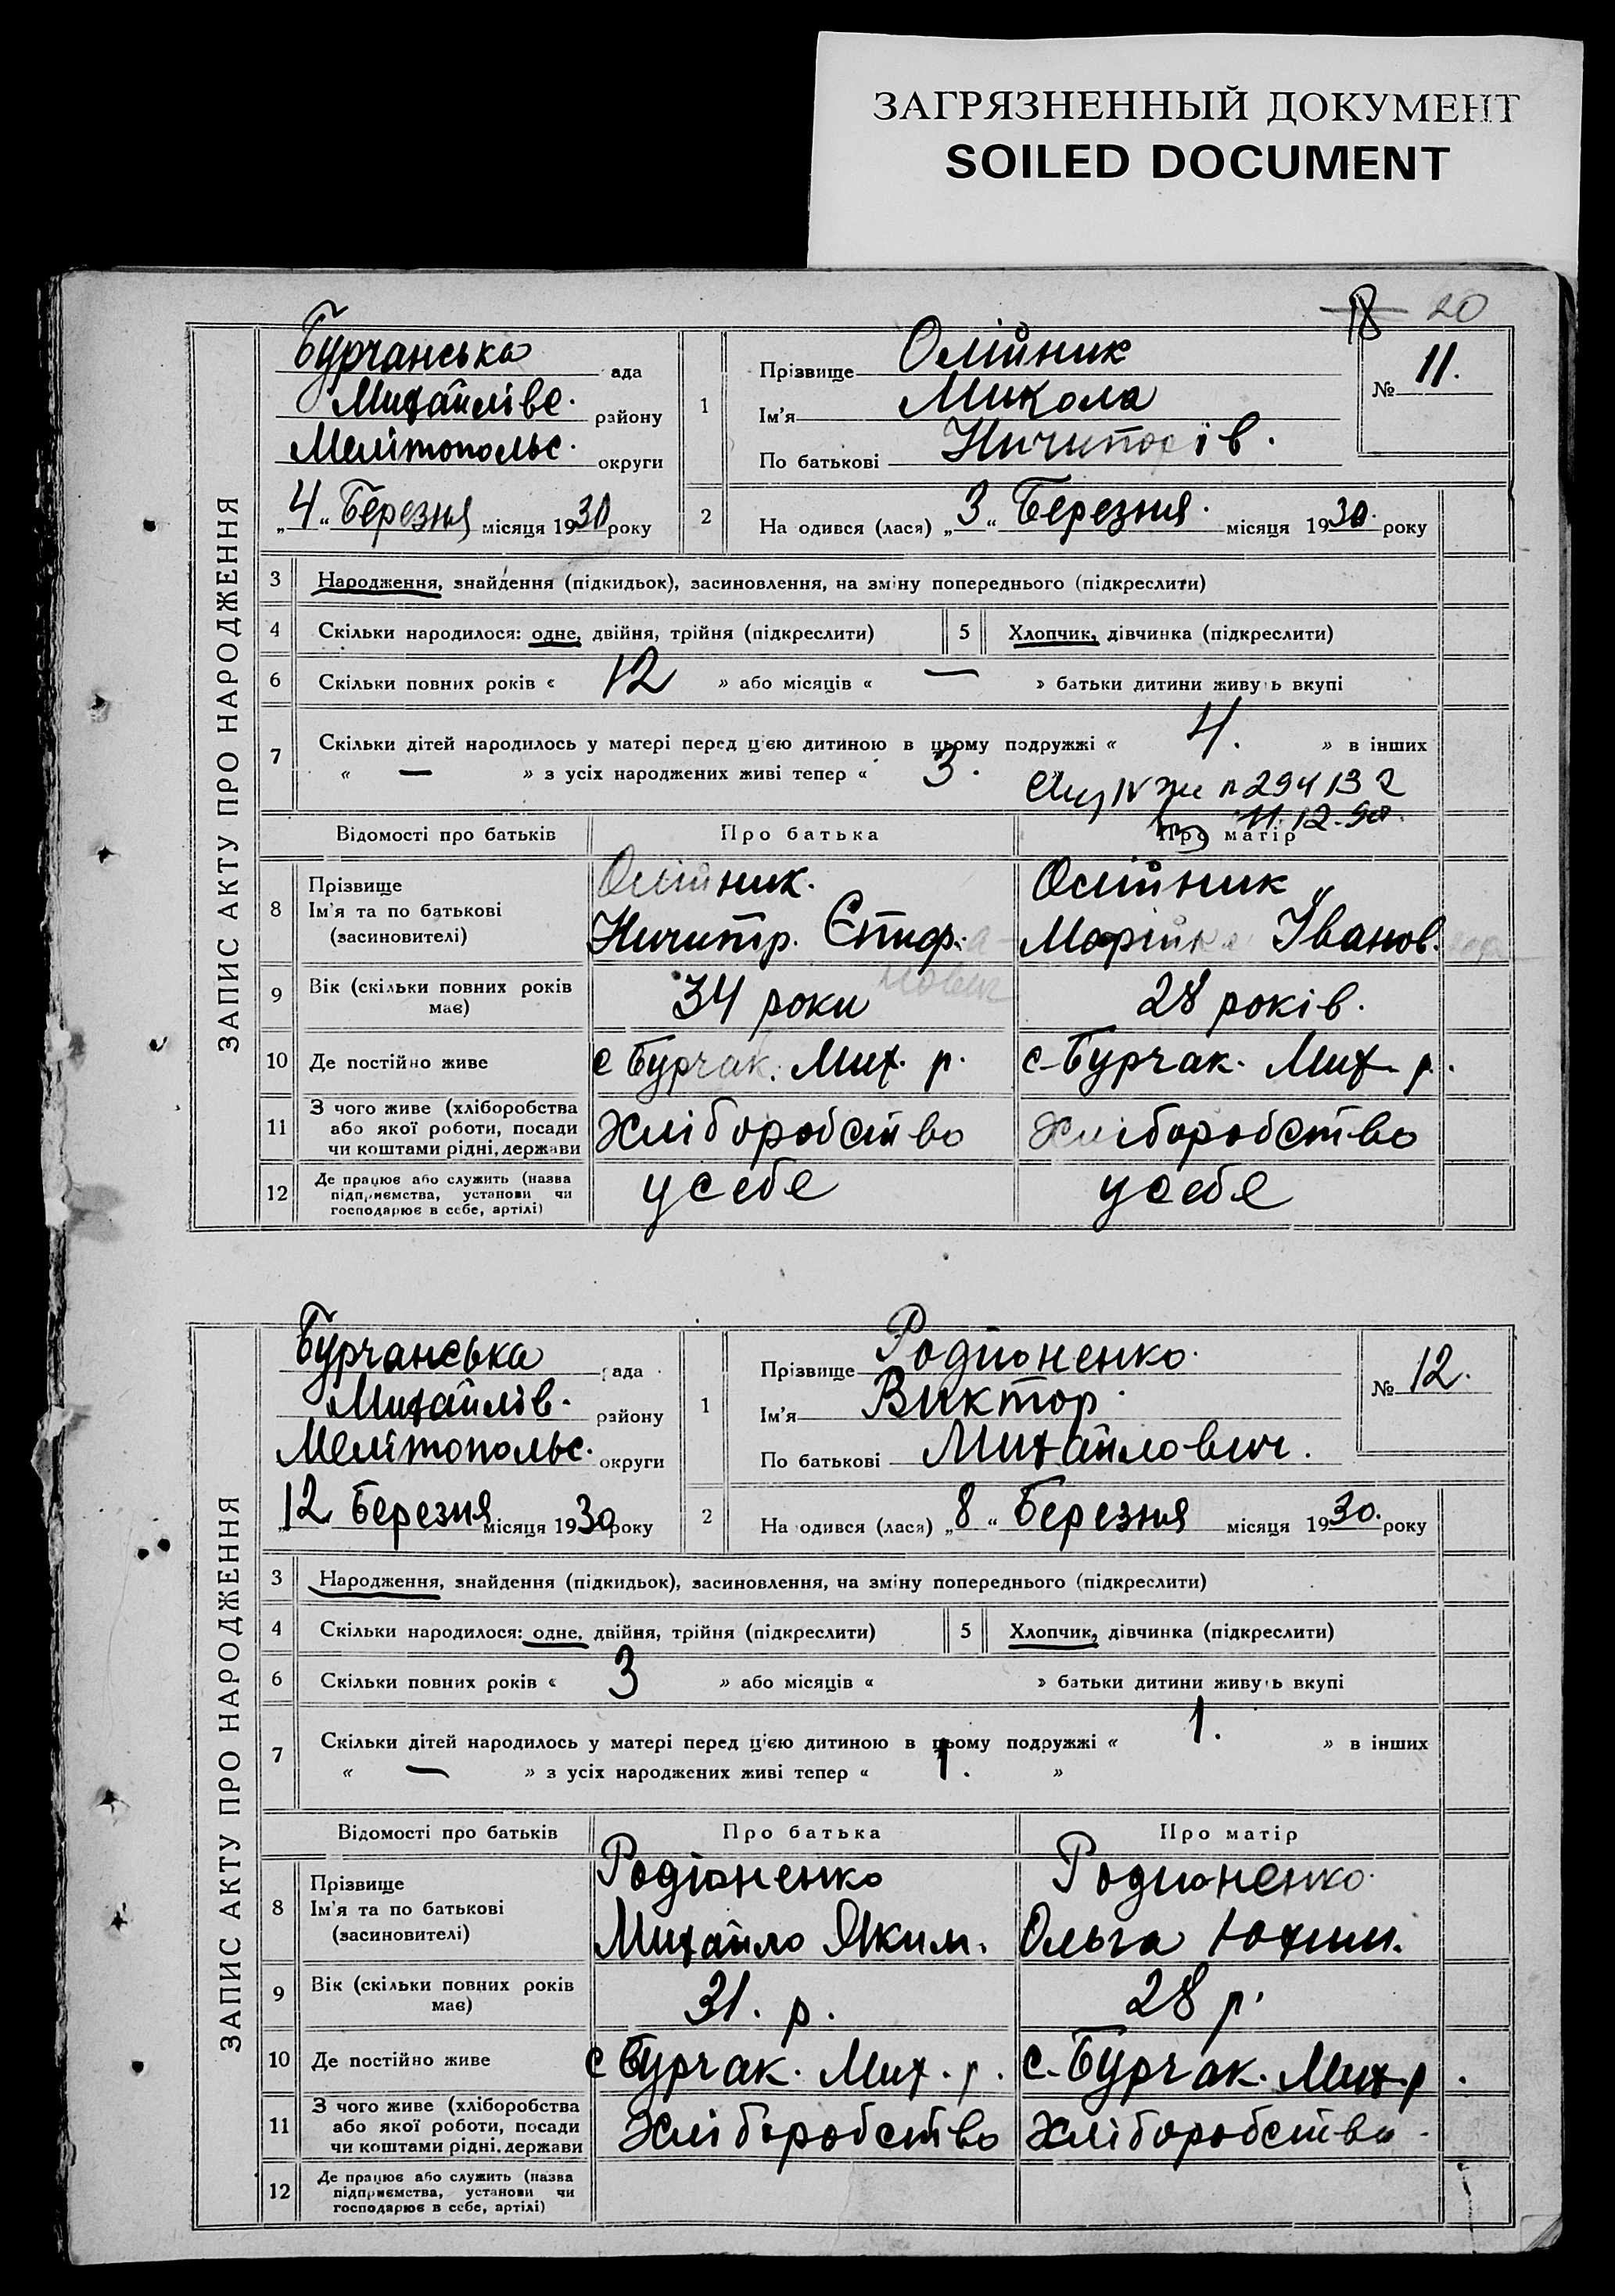 ЗАГРЯЗНЕННЫЙ ДОКУМЕНТ
SOILED DOCUMENT
18 20
ЗАПИС АКТУ ПРО НАРОДЖЕННЯ
Бурчанська ада
Михайлівс. району
Мелітопольс. округи
„4“ Березня місяця 1930 року
1 Прізвище Олійник
Ім'я Микола
По батькові Ничипорів.
№ 11.
2 На одився (лася) „3“ Березня. місяця 1930. року
3 Народження, знайдення (підкидьок), засиновлення, на зміну попереднього (підкреслити)
4 Скільки народилося: одне, двійня, трійня (підкреслити) 5 Хлопчик, дівчинка (підкреслити)
6 Скільки повних років « 12 » або місяців « — » батьки дитини живуь вкупі
7 Скільки дітей народилось у матері перед цією дитиною в цьому подружжі « 4. » в інших
« — » з усіх народжених живі тепер « 3. »
294132
11.12.90
Відомості про батьків Про батька Про матір
8 Прізвище Ім'я та по батькові (засновителі) Олійник. Олійник
Ничипр. Єпиф. Марійка Іванов.
9 Вік (скільки повних років має) 34 роки 28 років.
10 Де постійно живе с Бурчак. Мих. р. с-Бурчак. Мих. р.
11 З чого живе (хліборобства або якої роботи, посади чи коштами рідні, держави Хліборобство Хліборобство
12 Де працює або служить (назва підприємства, установи чи господарює в себе, артілі) усебе усебе
ЗАПИС АКТУ ПРО НАРОДЖЕННЯ
Бурчанська ада
Михайлів. району
Мелітопольс. округи
„12 Березня місяця 1930 року
1 Прізвище Родионенко.
Ім'я Виктор.
По батькові Михайлович.
№ 12.
2 На одився (лася) „8“ Березня місяця 1930. року
3 Народження, знайдення (підкидьок), засиновлення, на зміну попереднього (підкреслити)
4 Скільки народилося: одне, двійня, трійня (підкреслити) 5 Хлопчик, дівчинка (підкреслити)
6 Скільки повних років « 3 » або місяців « » батьки дитини живуь вкупі
7 Скільки дітей народилось у матері перед цією дитиною в цьому подружжі « 1. » в інших
« — » з усіх народжених живі тепер « 1. »
Відомості про батьків Про батька Про матір
8 Прізвище Ім'я та по батькові (засиновителі) Родіоненко Родионенко.
Михайло Яким. Ольга Юхим.
9 Вік (скільки повних років має) 31. р. 28 р.
10 Де постійно живе с Бурчак. Мих. р. с-Бурчак. Мих. р.
11 З чого живе (хліборобства або якої роботи, посади чи коштами рідні, держави Хліборобство Хліборобство.
12 Де працює або служить (назва підприємства, установи чи господарює в себе, артілі)